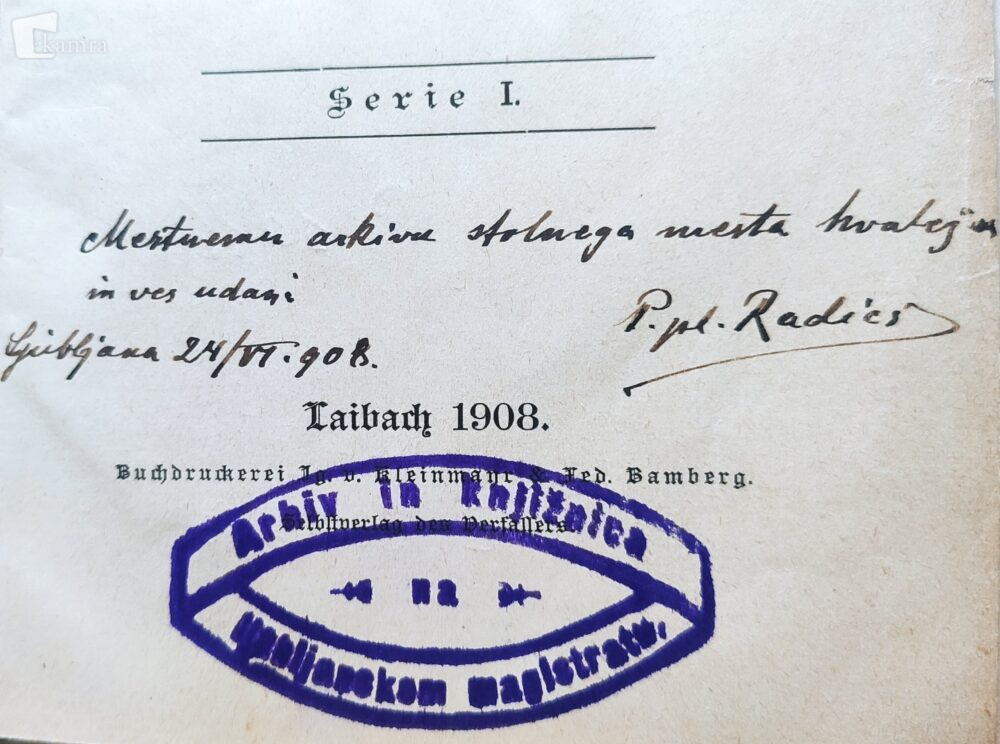 kamra
Serie I.
Mestnemu arkivu stolnega mesta hvaležen
in ves udani
P. pl. Radics
Ljubljana 24/VI. 908.
Laibach 1908.
Buchdruckerei Ig. v. Kleinmayr & Fed. Bamberg.
Selbstverlag des Verfassers.
Arhiv in knjižnica
na
ljubljanskem magistratu.